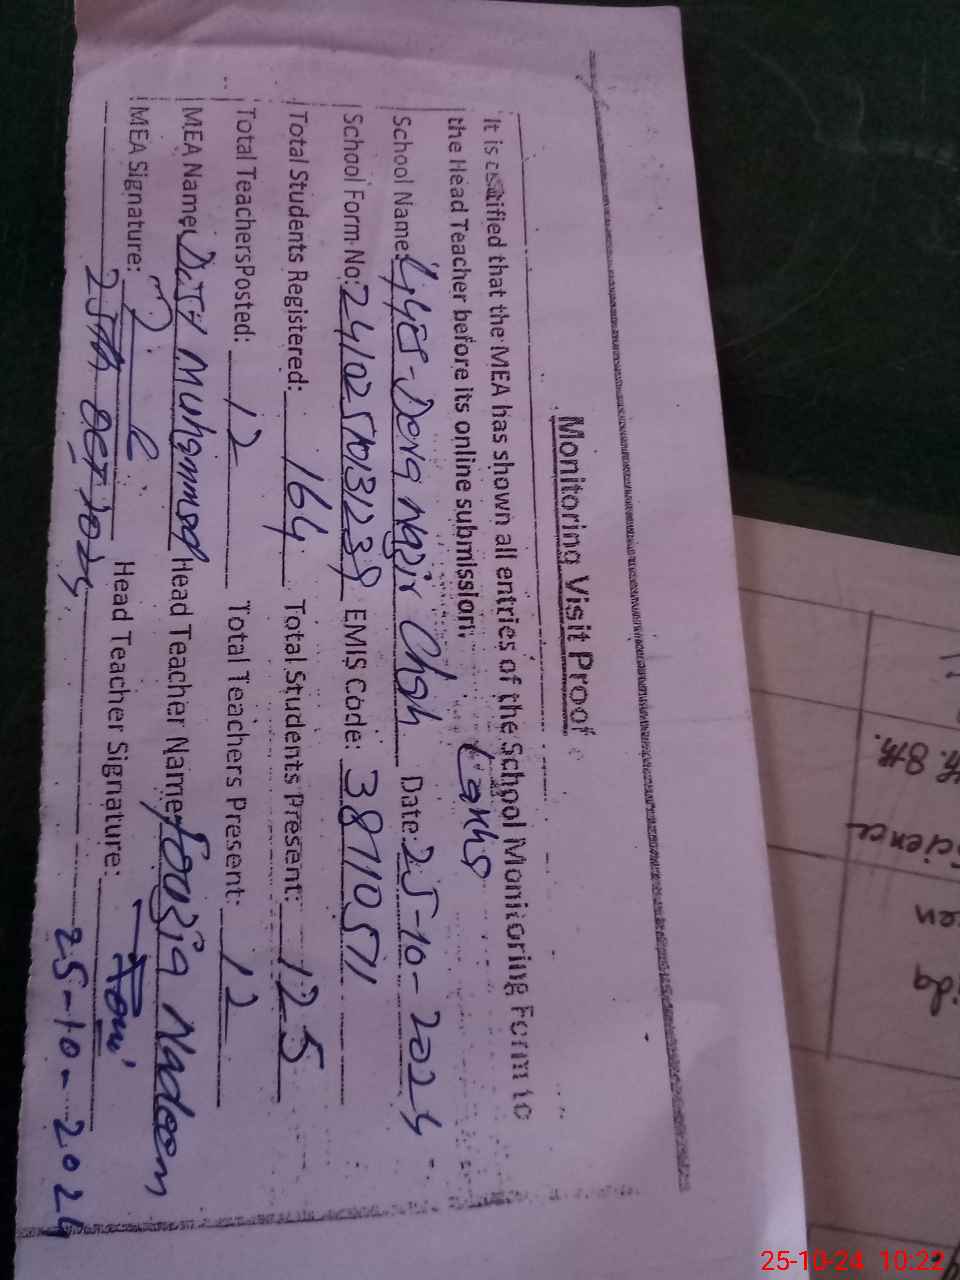 Monitoring Visit Proof
It is certified that the MEA has shown all entries of the School Monitoring Form to
the Head Teacher before its online submission.
School Name: GGES-Dera Nazir Chah Date: 25-10-2024
School Form No: 24102510313239 EMIS Code: 38710571
Total Students Registered: 164 Total Students Present: 125
Total TeachersPosted: 12 Total Teachers Present: 12
MEA Name: Muhammad Head Teacher Name: Fouzia Nadeem
MEA Signature: Head Teacher Signature:
25th Oct 2024 25-10-2024
8th.
Science
25-10-24 10:22